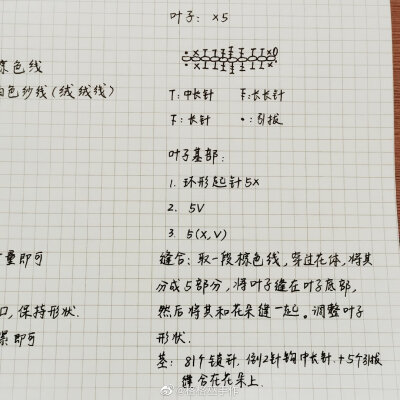 叶子: ×5
棕色线
白色纱线(绒绒线)
T:中长针 Ŧ:长长针
Ŧ:长针 •:引拔
叶子基部:
1. 环形起针5X
2. 5V
3. 5(X,V)
量即可
缝合:取一段棕色线,穿过花体,将其
分成5部分,将叶子缝在叶子底部,
口,保持形状.
然后将其和花朵缝一起。调整叶子
即可
形状.
茎: 81个锁针, 倒2针钩中长针.+5个引拔
缝合在花朵上.